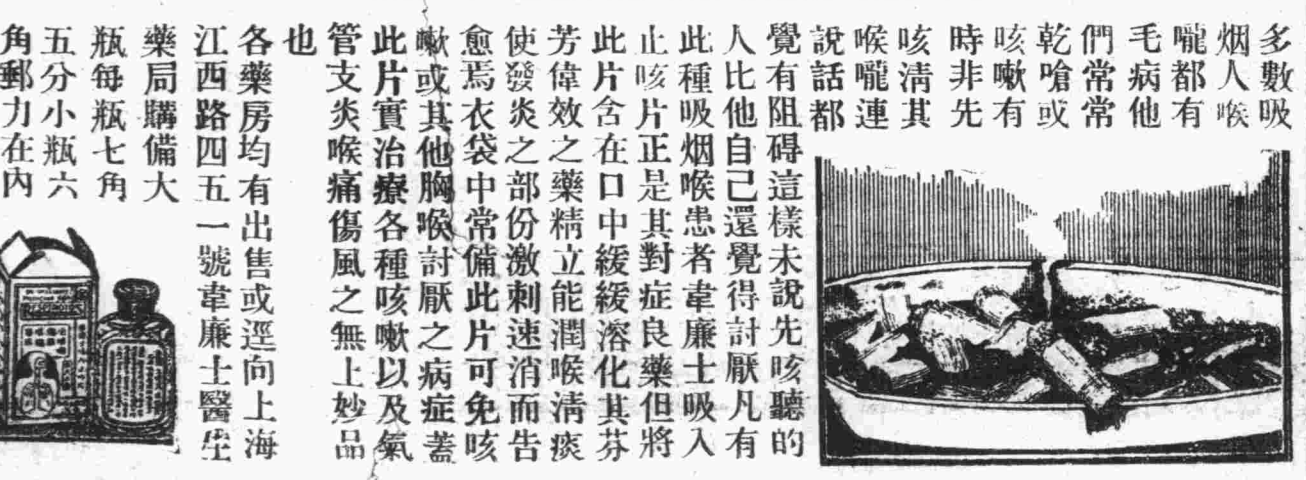 多數吸
烟人喉
嚨都有
毛病他
們常常
乾嗆或
咳嗽有
時非先
咳淸其
喉嚨連
說話都
覺有阻碍這樣未說先咳聽的
人比他自己還覺得討厭凡有
此種吸烟喉患者韋廉士吸入
止咳片正是其對症良藥但將
此片含在口中緩緩溶化其芬
芳偉效之藥精立能潤喉淸痰
使發炎之部份激刺速消而告
愈焉衣袋中常備此片可免咳
嗽或其他胸喉討厭之病症蓋
此片實治療各種咳嗽以及氣
管支炎喉痛傷風之無上妙品
也
各藥房均有出售或逕向上海
江西路四五一號韋廉士醫生
藥局購備大
瓶每瓶七角
五分小瓶六
角郵力在內